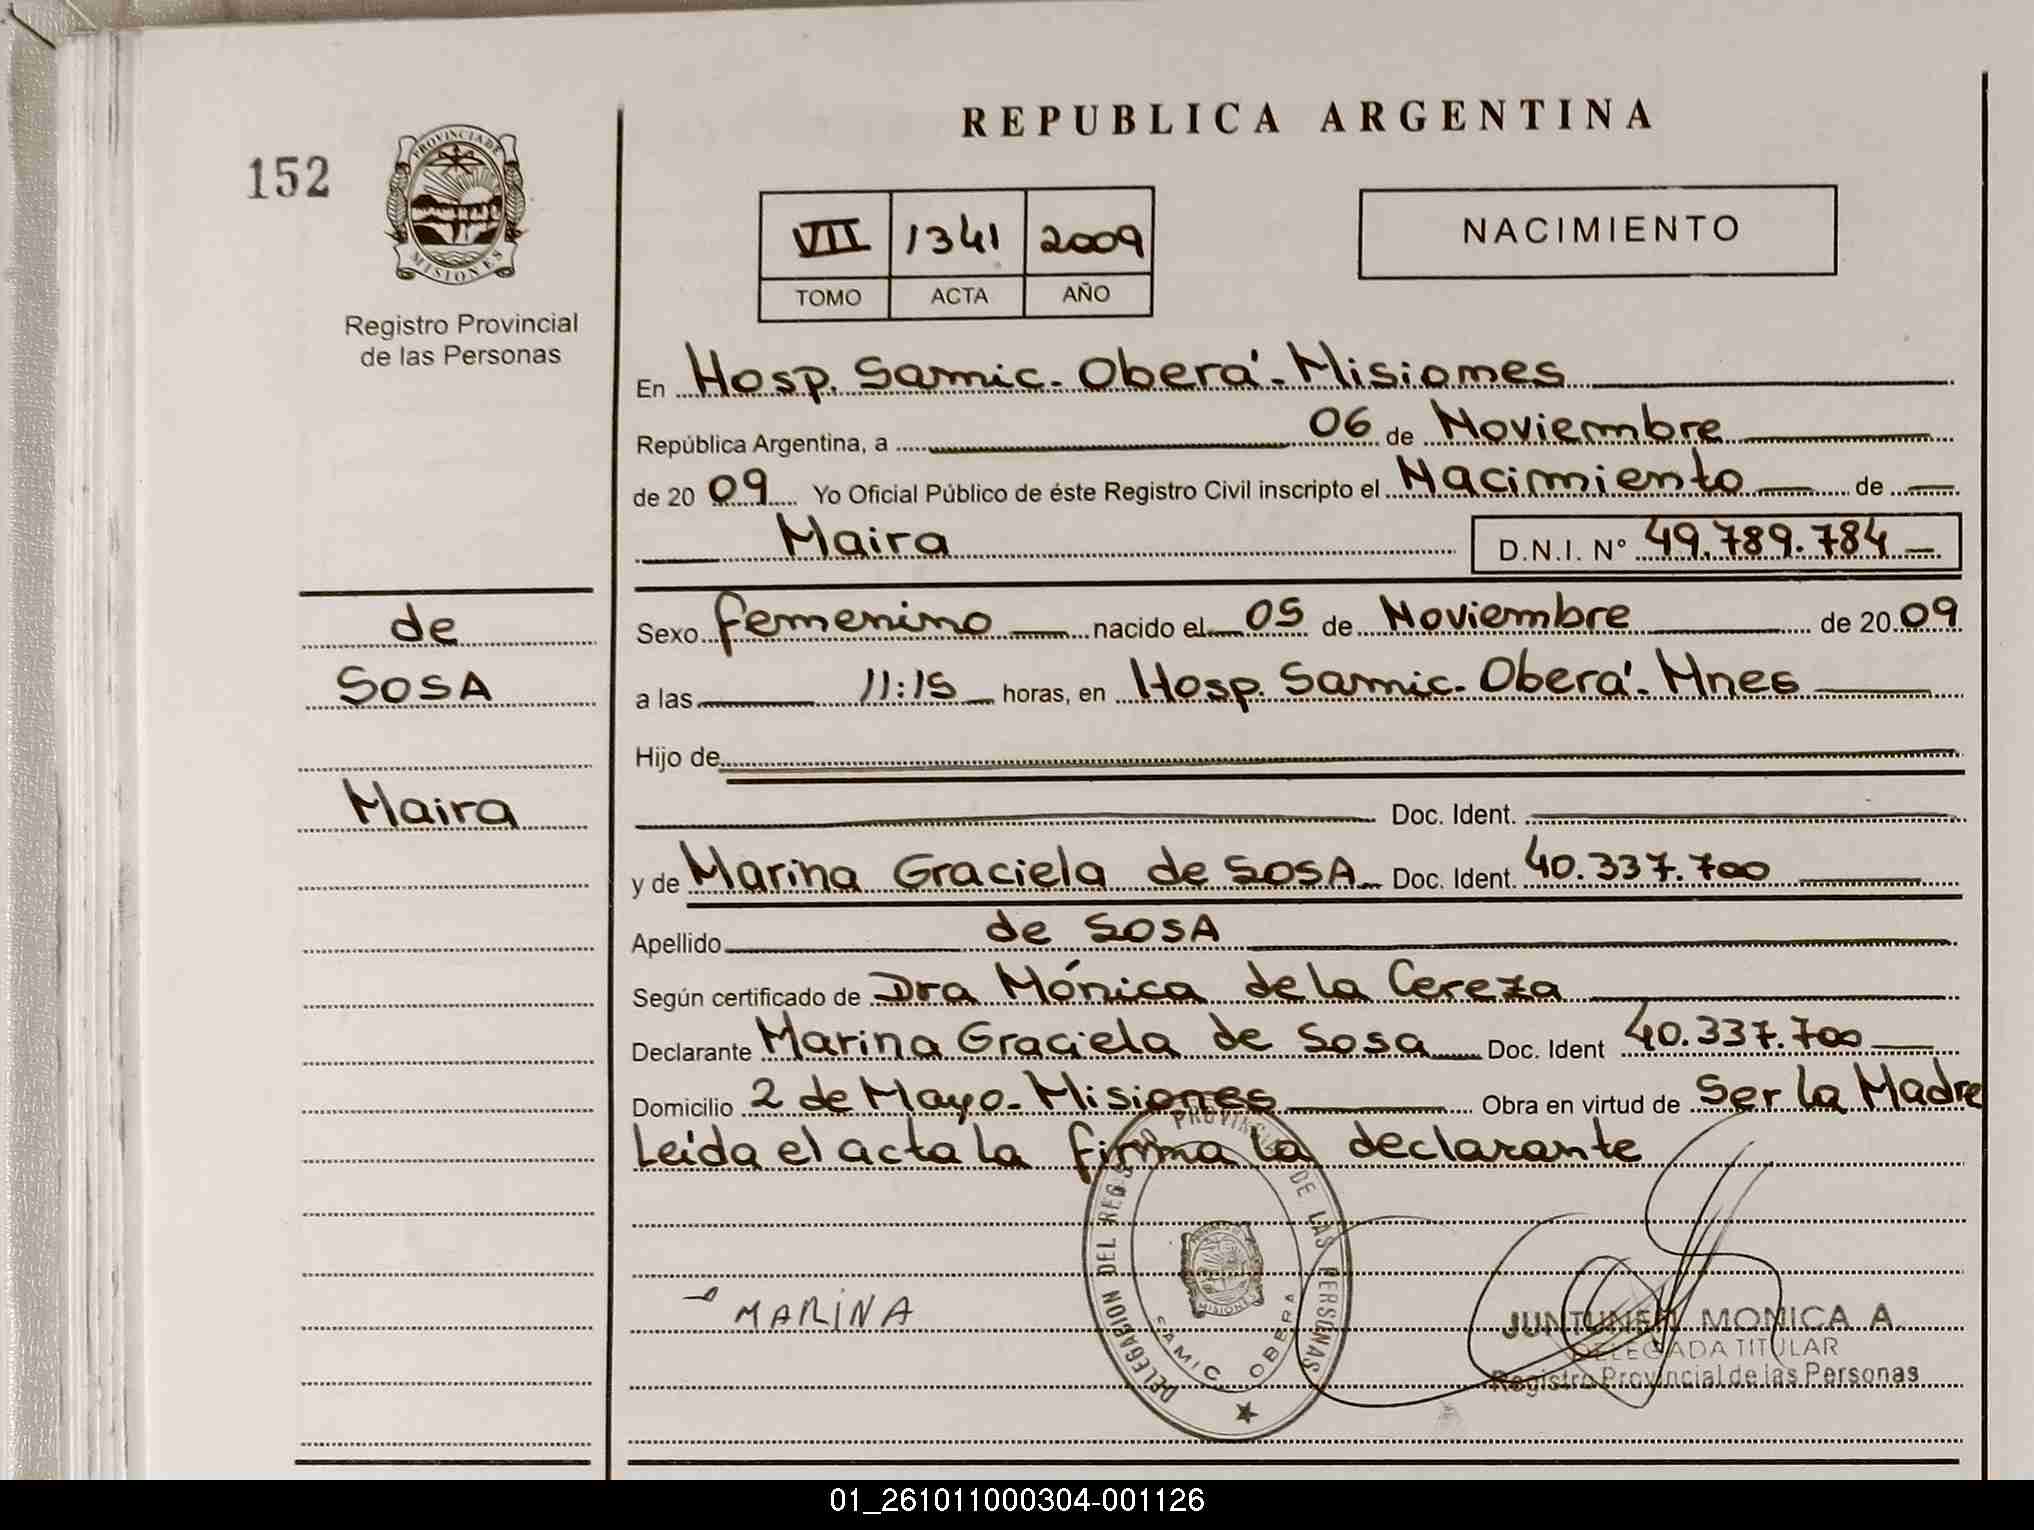 REPUBLICA ARGENTINA
152
PROVINCIA DE
MISIONES
Registro Provincial
de las Personas
VII 1341 2009
TOMO ACTA AÑO
NACIMIENTO
En Hosp. Samic. Oberá - Misiones
República Argentina, a 06 de Noviembre
de 20 09 Yo Oficial Público de éste Registro Civil inscripto el Nacimiento de
Maira D.N.I. N° 49.789.784
de
SOSA
Maira
Sexo femenino nacido el 05 de Noviembre de 20 09
a las 11:15 horas, en Hosp. Samic. Oberá - Mnes
Hijo de
Doc. Ident.
y de Marina Graciela de SOSA Doc. Ident. 40.337.700
Apellido de SOSA
Según certificado de Dra Mónica de la Cereza
Declarante Marina Graciela de Sosa Doc. Ident 40.337.700
Domicilio 2 de Mayo - Misiones Obra en virtud de Ser la Madre
Leida el acta la firma la declarante
DELEGACION DEL REGISTRO PROVINCIAL DE LAS PERSONAS
MISIONES
SAMIC OBERA
MARINA
JUNTUNEN MONICA A.
DELEGADA TITULAR
Registro Provincial de las Personas
01_261011000304-001126